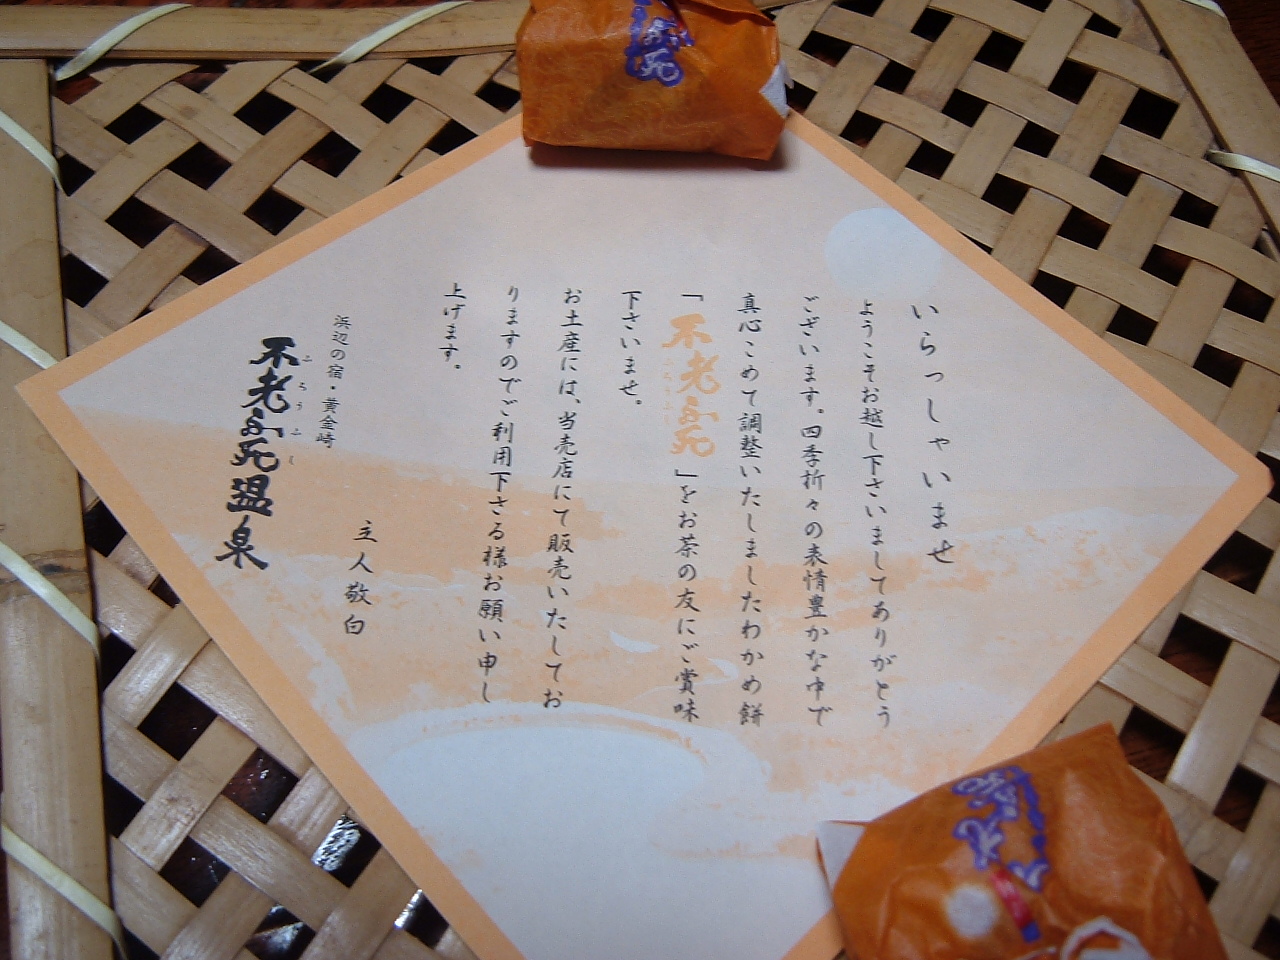 いらっしゃいませ
ようこそお越し下さいましてありがとう
ございます。四季折々の表情豊かな中で
真心こめて調整いたしましたわかめ餅
「不老ふ死」をお茶の友にご賞味
下さいませ。
お土産には、当売店にて販売いたしてお
りますのでご利用下さる様お願い申し
上げます。
主人敬白
浜辺の宿・黄金崎
不老ふ死温泉
ふろうふし